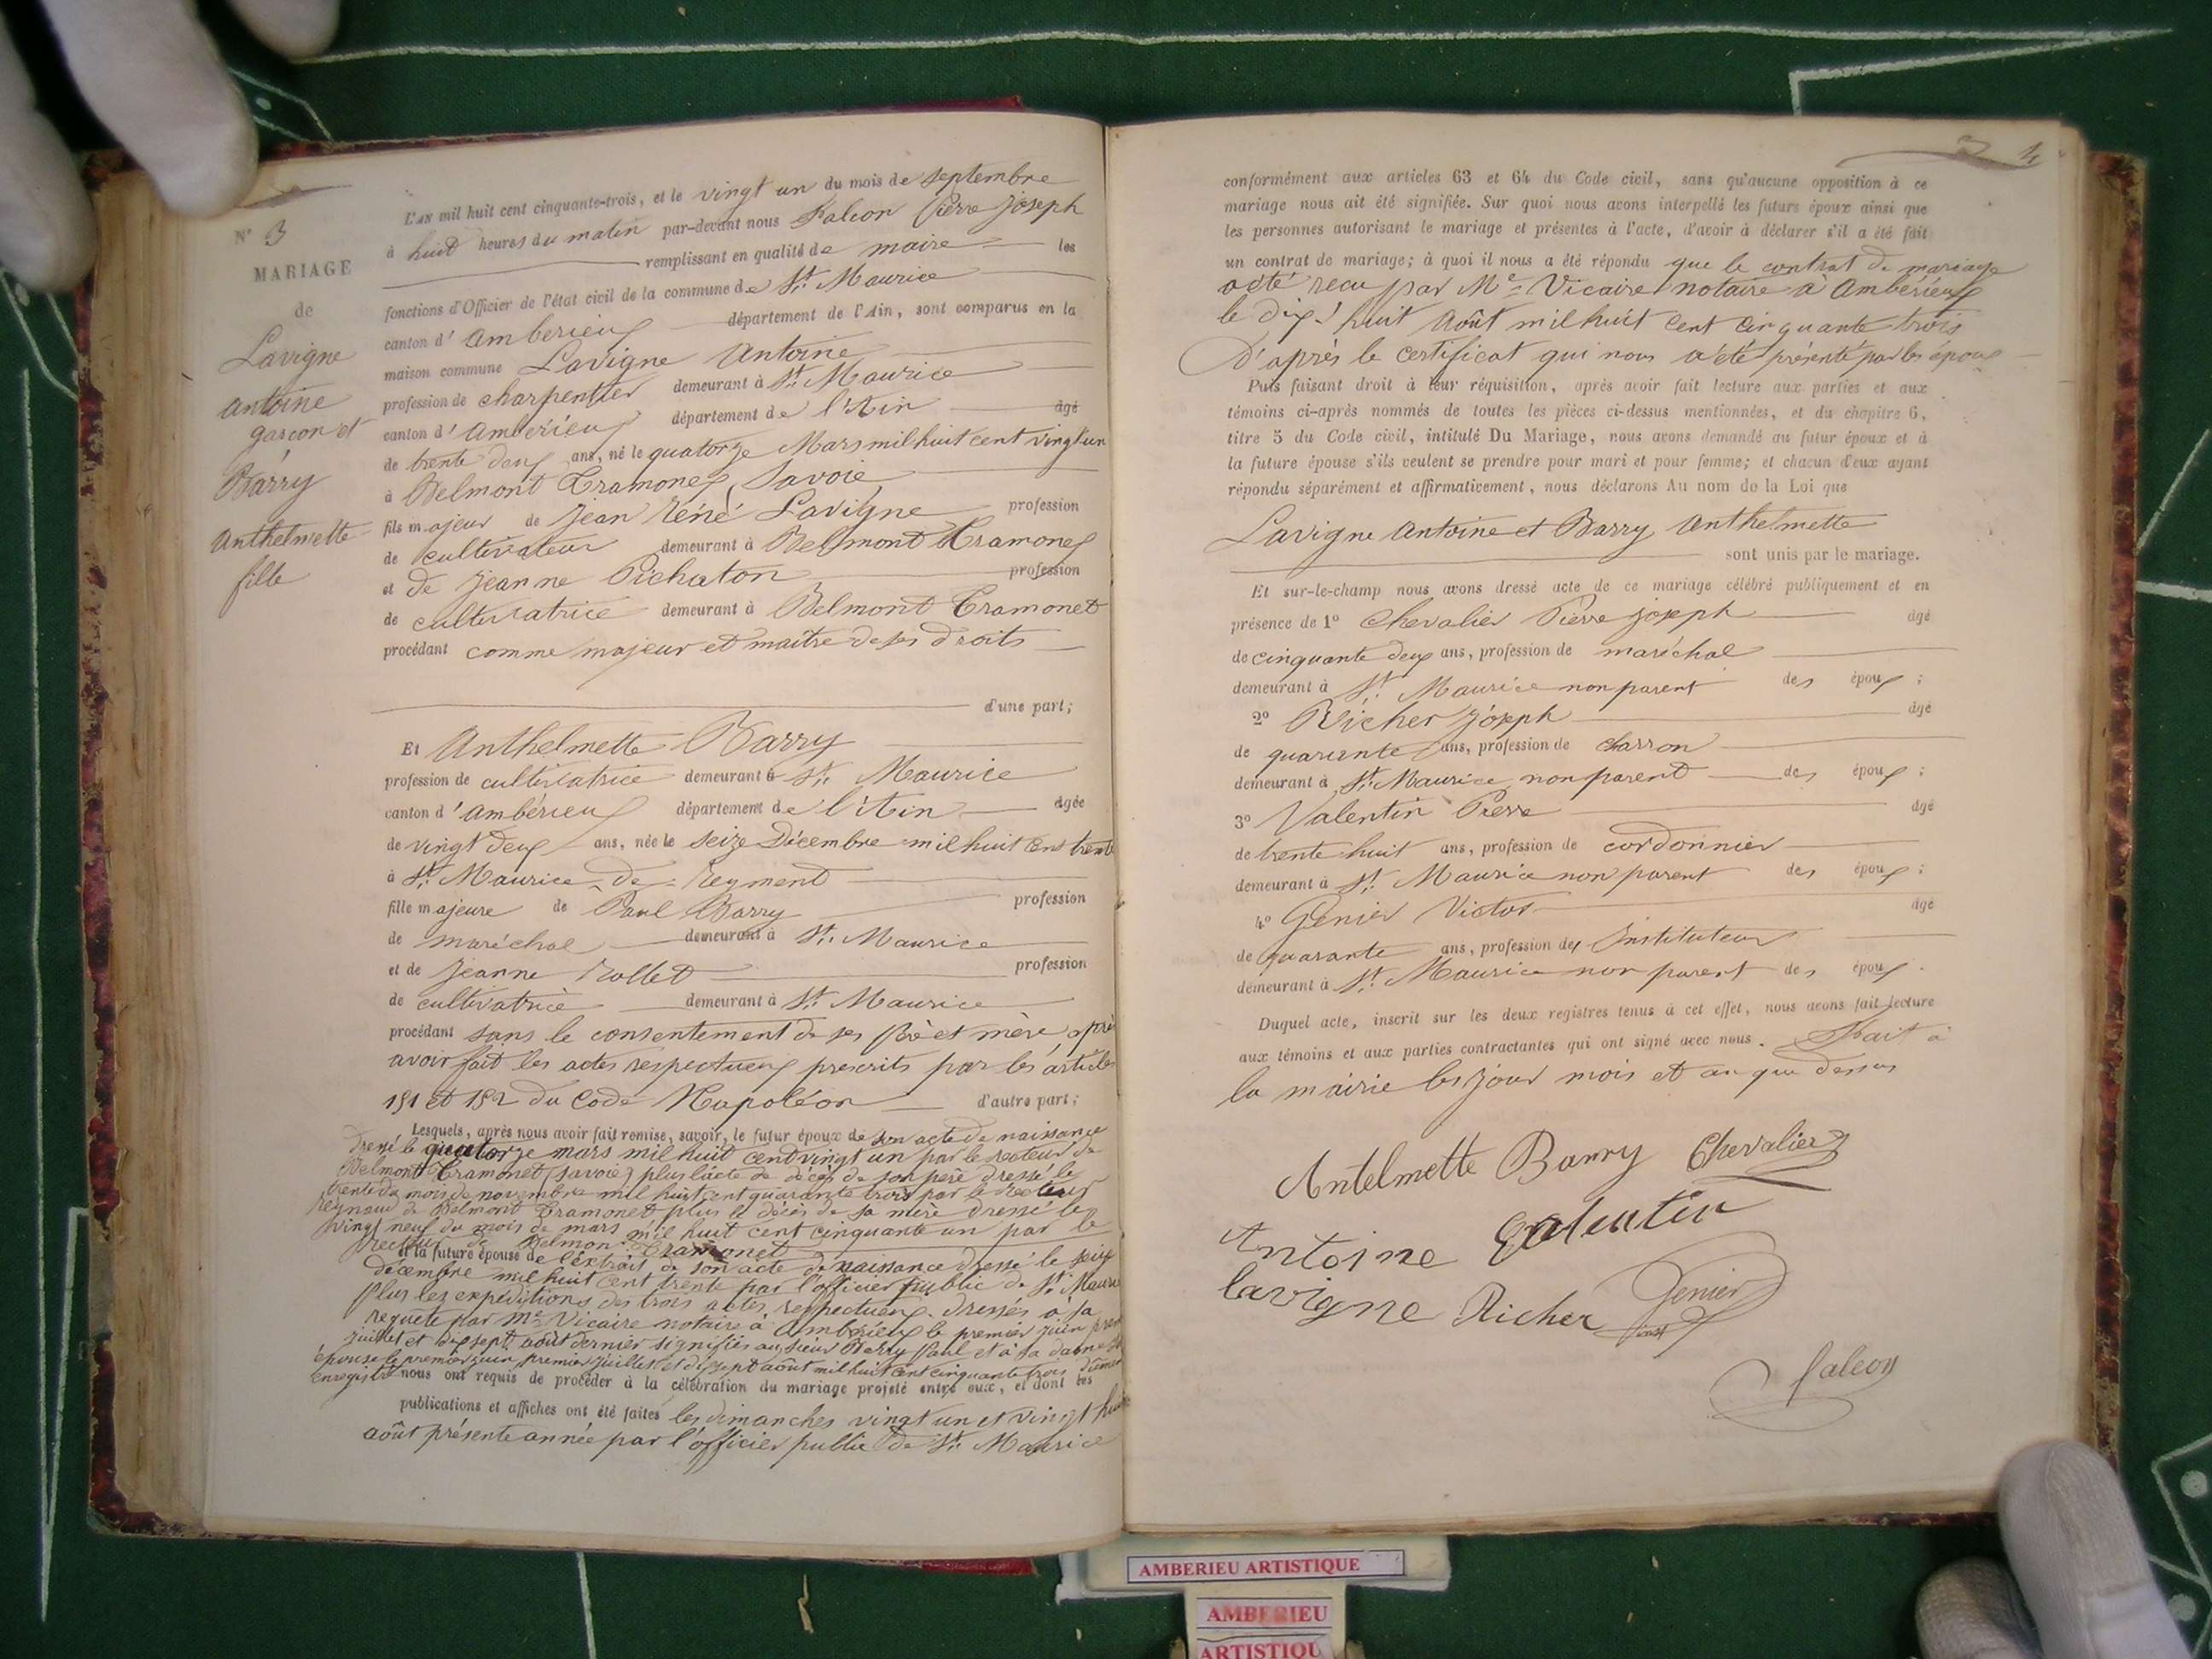 N° 3
MARIAGE
de
Lavigne
Antoine
garçon et
Barry
Anthelmette
fille
L'AN mil huit cent cinquante-trois, et le vingt un du mois de septembre
à huit heures du matin par-devant nous Falcon Pierre Joseph
remplissant en qualité de maire les
fonctions d'Officier de l'état civil de la commune de St. Maurice
canton d'Ambérieux département de l'Ain, sont comparus en la
maison commune Lavigne Antoine
profession de charpentier demeurant à St. Maurice
canton d'Ambérieux département de l'Ain âgé
de trente deux ans, né le quatorze Mars mil huit cent vingt un
à Belmont Tramonex Savoie
fils majeur de Jean Réné Lavigne profession
de cultivateur demeurant à Belmont Tramonex
et de Jeanne Pichaton profession
de cultivatrice demeurant à Belmont Tramonet
procédant comme majeur et maître de ses droits
d'une part;
Et Anthelmette Barry
profession de cultivatrice demeurant à St. Maurice
canton d'Ambérieux département de l'Ain âgée
de vingt deux ans, née le seize Décembre mil huit cent trente
à St. Maurice de Reyment
fille majeure de Paul Barry profession
de maréchal demeurant à St. Maurice
et de Jeanne Rollet profession
de cultivatrice demeurant à St. Maurice
procédant sans le consentement de ses père et mère, après
avoir fait les actes respectueux prescrits par les articles
151 et 152 du Code Napoléon d'autre part;
Lesquels, après nous avoir fait remise, savoir, le futur époux de son acte de naissance
dressé le quatorze mars mil huit cent vingt un par le recteur de
Belmont Tramonet (Savoie) plus l'acte de décès de son père dressé le
trente du mois de novembre mil huit cent quarante trois par le recteur
Reynaud de Belmont Tramonet plus le décès de sa mère dressé le
vingt neuf du mois de mars mil huit cent cinquante un par le
recteur de Belmon Tramonet
et la future épouse de l'extrait de son acte de naissance dressé le seize
décembre mil huit cent trente par l'officier public de St. Maurice
Plus les expéditions des trois actes respectueux dressés à sa
requête par Me Vicaire notaire à Ambérieux le premier juin
juillet et dix sept août dernier signifiés au sieur Barry Paul et à sa dame
épouse le premier juin premier juillet et dix sept août mil huit cent cinquante trois
enregistré nous ont requis de procéder à la célébration du mariage projeté entre eux, et dont les
publications et affiches ont été faites les dimanches vingt un et vingt huit
août présente année par l'officier public de St. Maurice
4
conformément aux articles 63 et 64 du Code civil, sans qu'aucune opposition à ce
mariage nous ait été signifiée. Sur quoi nous avons interpellé les futurs époux ainsi que
les personnes autorisant le mariage et présentes à l'acte, d'avoir à déclarer s'il a été fait
un contrat de mariage; à quoi il nous a été répondu que le contrat de mariage
a été reçu par Me Vicaire notaire à Ambérieux
le dix-huit Août mil huit cent cinquante trois
D'après le certificat qui nous a été présenté par les époux
Puis faisant droit à leur réquisition, après avoir fait lecture aux parties et aux
témoins ci-après nommés de toutes les pièces ci-dessus mentionnées, et du chapitre 6,
titre 5 du Code civil, intitulé Du Mariage, nous avons demandé au futur époux et à
la future épouse s'ils veulent se prendre pour mari et pour femme; et chacun d'eux ayant
répondu séparément et affirmativement, nous déclarons Au nom de la Loi que
Lavigne Antoine et Barry Anthelmette
sont unis par le mariage.
Et sur-le-champ nous avons dressé acte de ce mariage célébré publiquement et en
présence de 1° Chevalier Pierre joseph âgé
de cinquante deux ans, profession de maréchal
demeurant à St. Maurice non parent des époux;
2° Richer Joseph âgé
de quarante ans, profession de charron
demeurant à St. Maurice non parent des époux;
3° Valentin Pierre âgé
de trente huit ans, profession de cordonnier
demeurant à St. Maurice non parent des époux;
4° Genier Victor âgé
de quarante ans, profession de Instituteur
demeurant à St. Maurice non parent des époux.
Duquel acte, inscrit sur les deux registres tenus à cet effet, nous avons fait lecture
aux témoins et aux parties contractantes qui ont signé avec nous. Fait à
la mairie les jour mois et an que dessus
Antelmette Barry Chevalier
Antoine Valentin
lavigne Richer Genier
inst
falcon
AMBERIEU ARTISTIQUE
AMBERIEU
ARTISTIQU